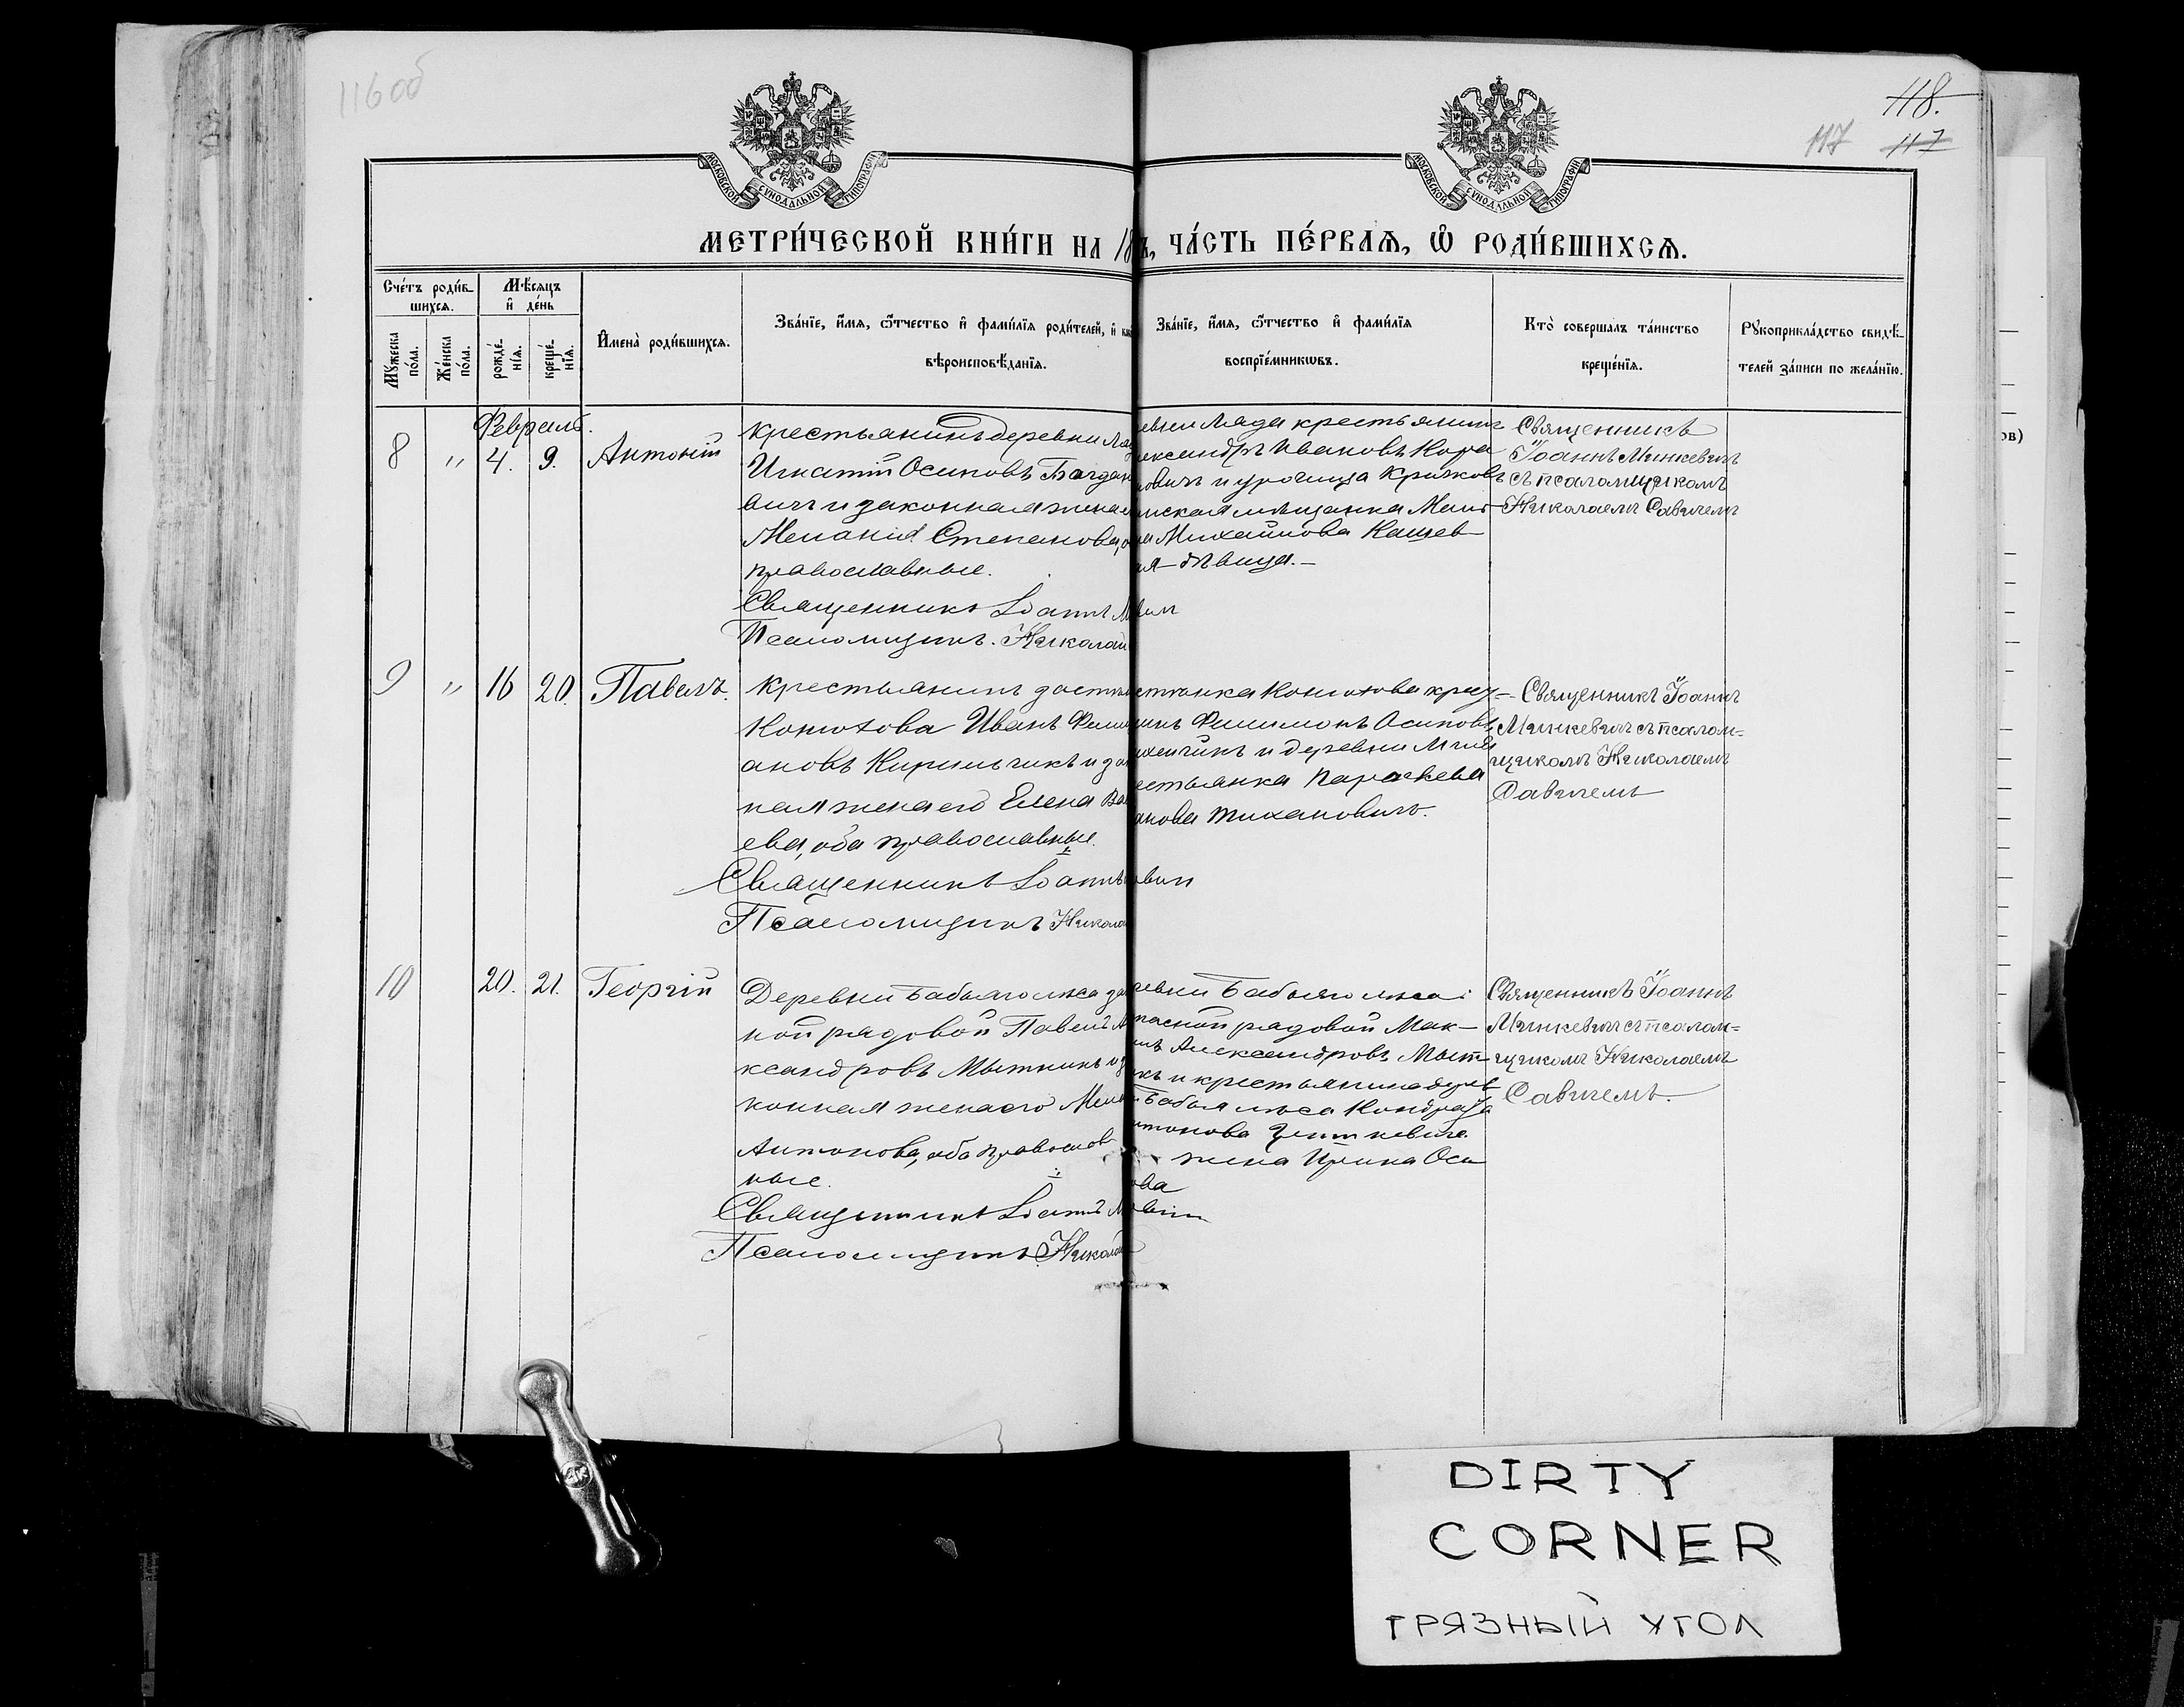 116 об
118.
117 117
МОСКОВСКОЙ СУНОДАЛЬНОЙ ТИПОГРАФИИ
МОСКОВСКОЙ СУНОДАЛЬНОЙ ТИПОГРАФИИ
МЕТРИ́ЧЕСКОЙ КНИ́ГИ НА 18 ъ, ЧА́СТЬ ПЕ́РВАѦ, Ѿ РОДИ́ВШИХСѦ.
Сче́тъ роди́в-
шихсѧ.
Мѣ́сяцъ
и҆ де́нь
Мꙋжеска по́ла.
Же́нска по́ла.
рожде́-нїѧ.
креще́-нїѧ.
И҆мена̀ роди́вшихсѧ.
Зва́нїе, и҆́мѧ, ѻ҆́тчество и҆ фами́лїѧ роди́телей, и҆
вѣроисповѣ́данїѧ.
Зва́нїе, и҆́мѧ, ѻ҆́тчество и҆ фами́лїѧ
воспрїе́мникѡвъ.
Кто̀ соверша́лъ та́инство
креще́нїѧ.
Рꙋкоприкла́дство свидѣ́-
телей за́писи по жела́нїю.
Февраль.
8 " 4. 9. Антоній
крестьянинъ деревни Ляд
Игнатій Осиповъ Богдан
вичъ и законная жена е
Меланія Степанова, о
православные.
Священникъ Іоаннъ М
Псаломщикъ Николай
евни Ляда крестьянинъ
ександръ Ивановъ Кора
новичъ и урочища Крижовъ
инская мѣщанка Мат
на Михайлова Кащев
ая дѣвица.
вичъ
Священникъ
Іоаннъ Минкевичъ
съ псаломщикомъ
Николаемъ Савичемъ
9 " 16 20. Павелъ.
крестьянинъ застѣн
Конюхова Иванъ Филим
ановъ Кирильчикъ и за
ная жена его Елена Ва
ева, оба православные.
Священникъ Іоаннъ
Псаломщикъ Никола
стѣнка Конюхова крес-
инъ Филимонъ Осиповъ
и деревни
естьянка Параскева
анова Тихановичъ.
вичъ
Священникъ Іоаннъ
Минкевичъ съ псалом=
щикомъ Николаемъ
Савичемъ
10 20. 21. Георгій
Деревни Бабьяго лѣса за
ной рядовой Павелъ Ал
ксандровъ Мытникъ и з
конная жена его Мела
Антонова, оба православ
ные.
Священникъ Іоаннъ М
Псаломщикъ Николай
ревни Бабьяго лѣса
пасной рядовой Мак-
имъ Александровъ Мыт-
къ и крестьянина дерев
Бабья лѣса Кондрата
нтонова
жена Ирина Оси
ова
вичъ
Священникъ Іоаннъ
Минкевичъ съ псалом=
щикомъ Николаемъ
Савичемъ.
ов)
DIRTY
CORNER
ГРЯЗНЫЙ УГОЛ